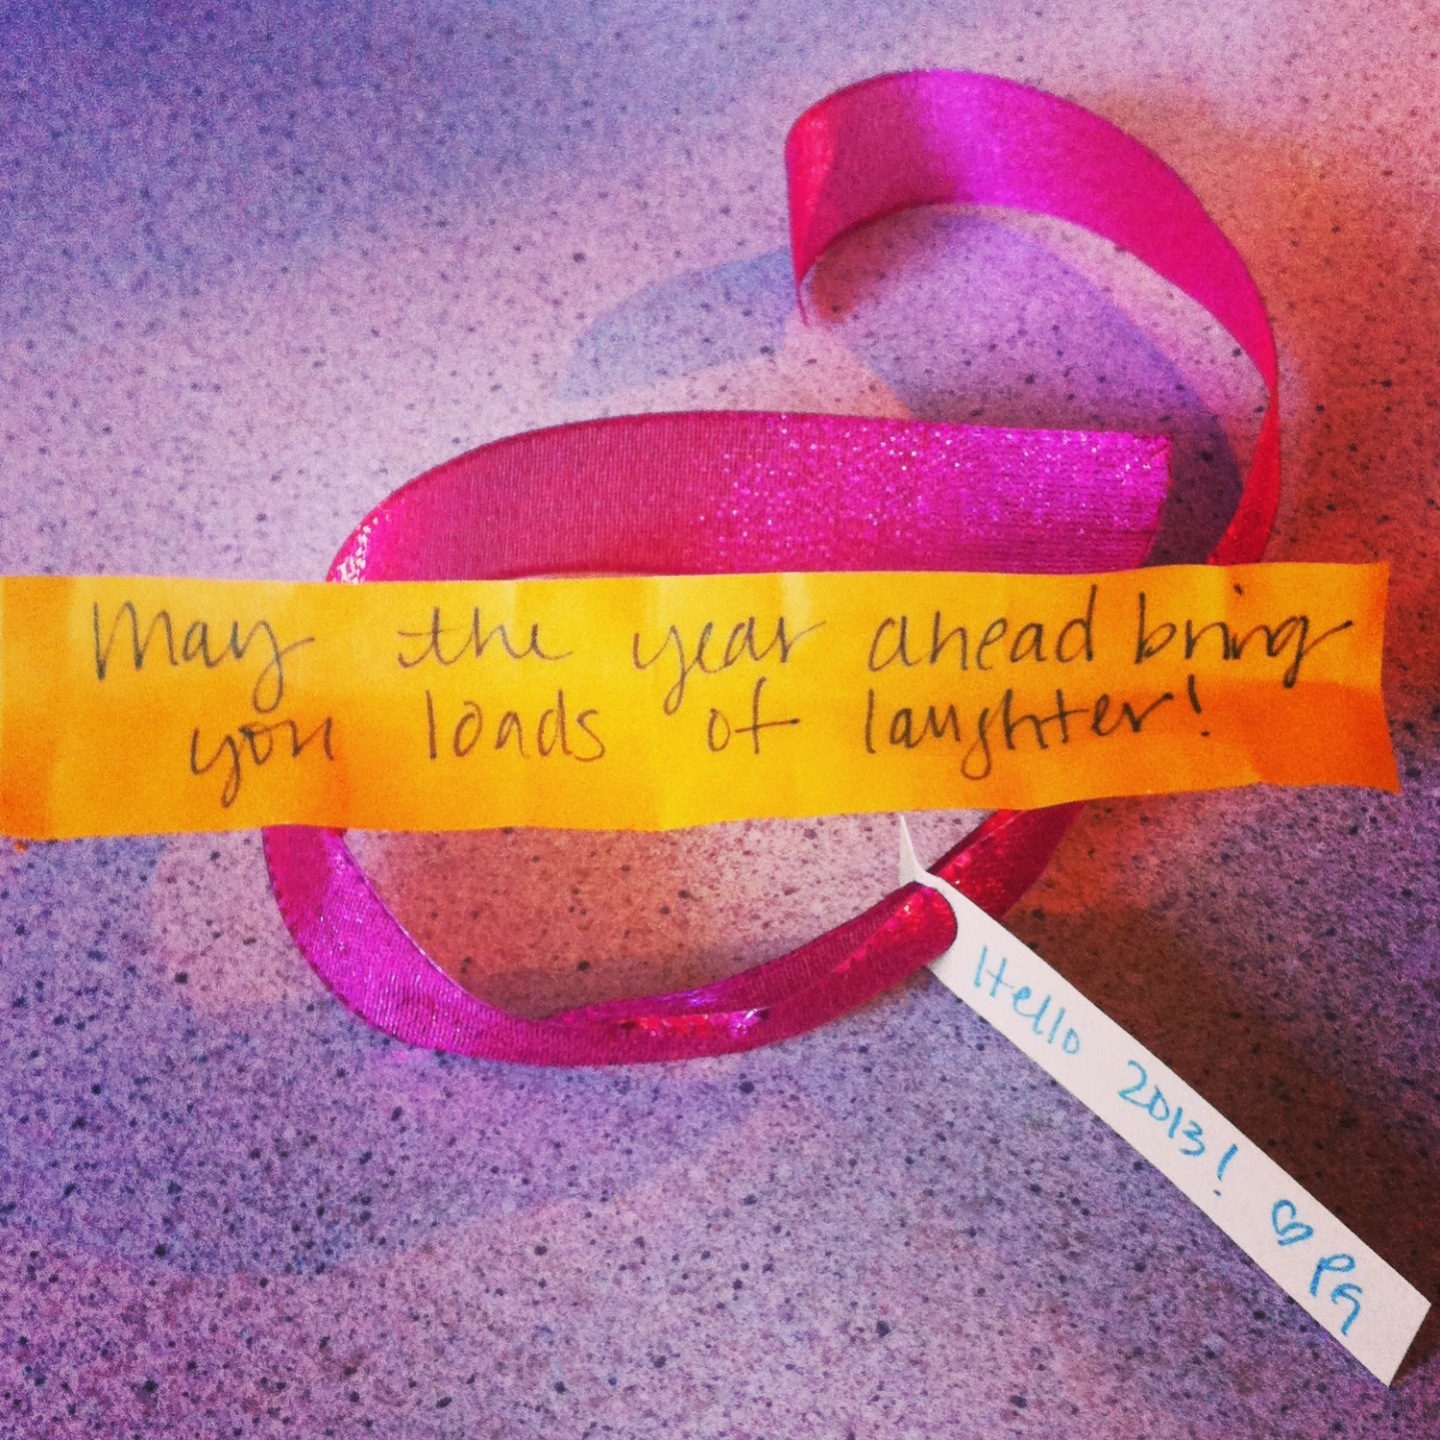 May the year ahead bring
you loads of laughter!
Hello 2013! ♡ PG